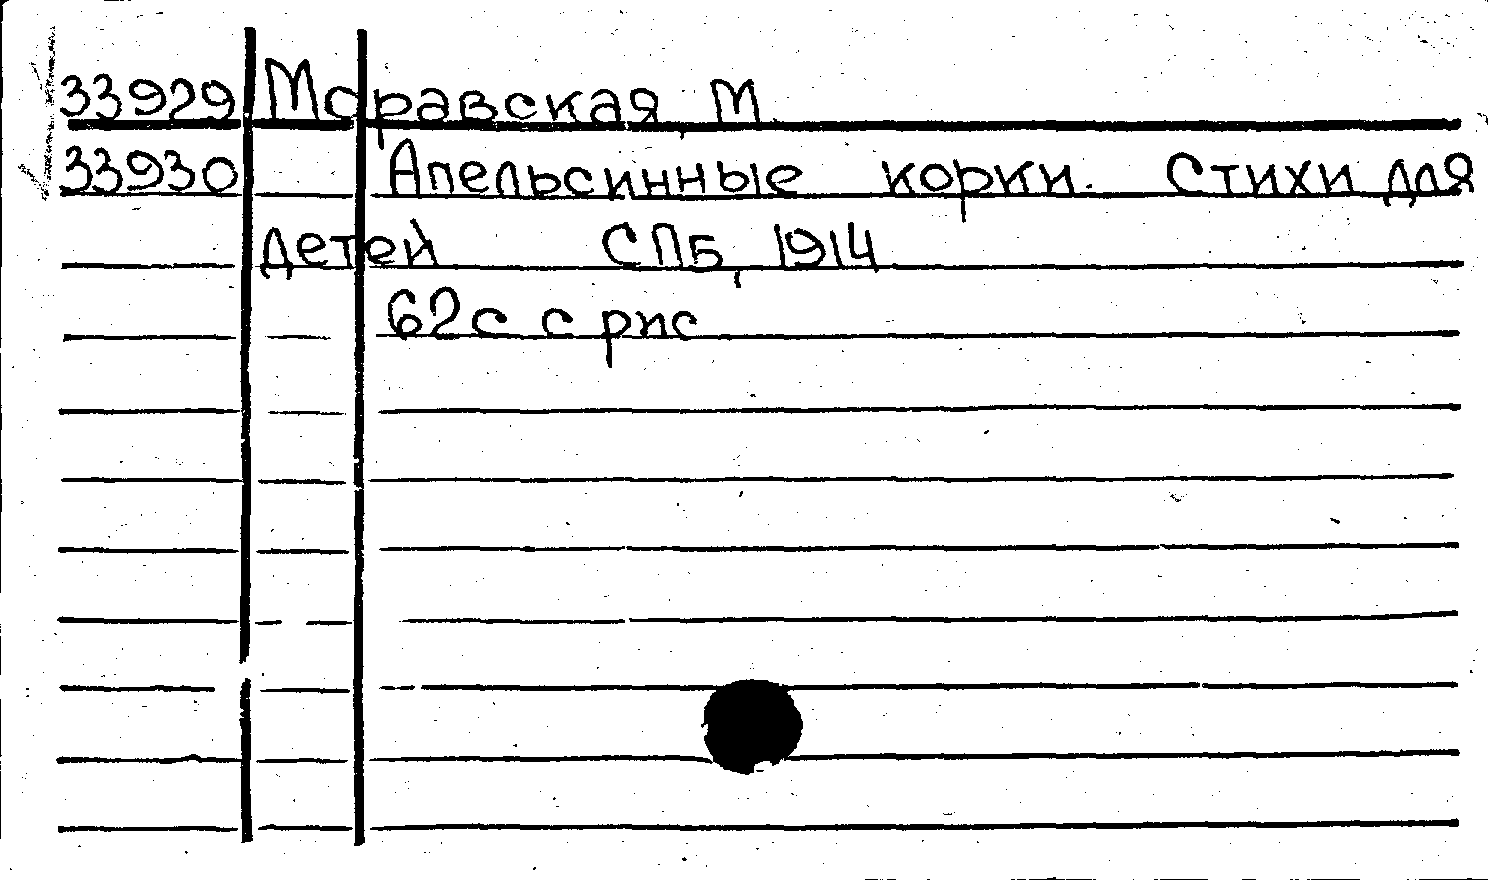 33929 Моравская, М.
33930 Апельсинные корки. Стихи для
детей СПБ, 1914
62с с рис